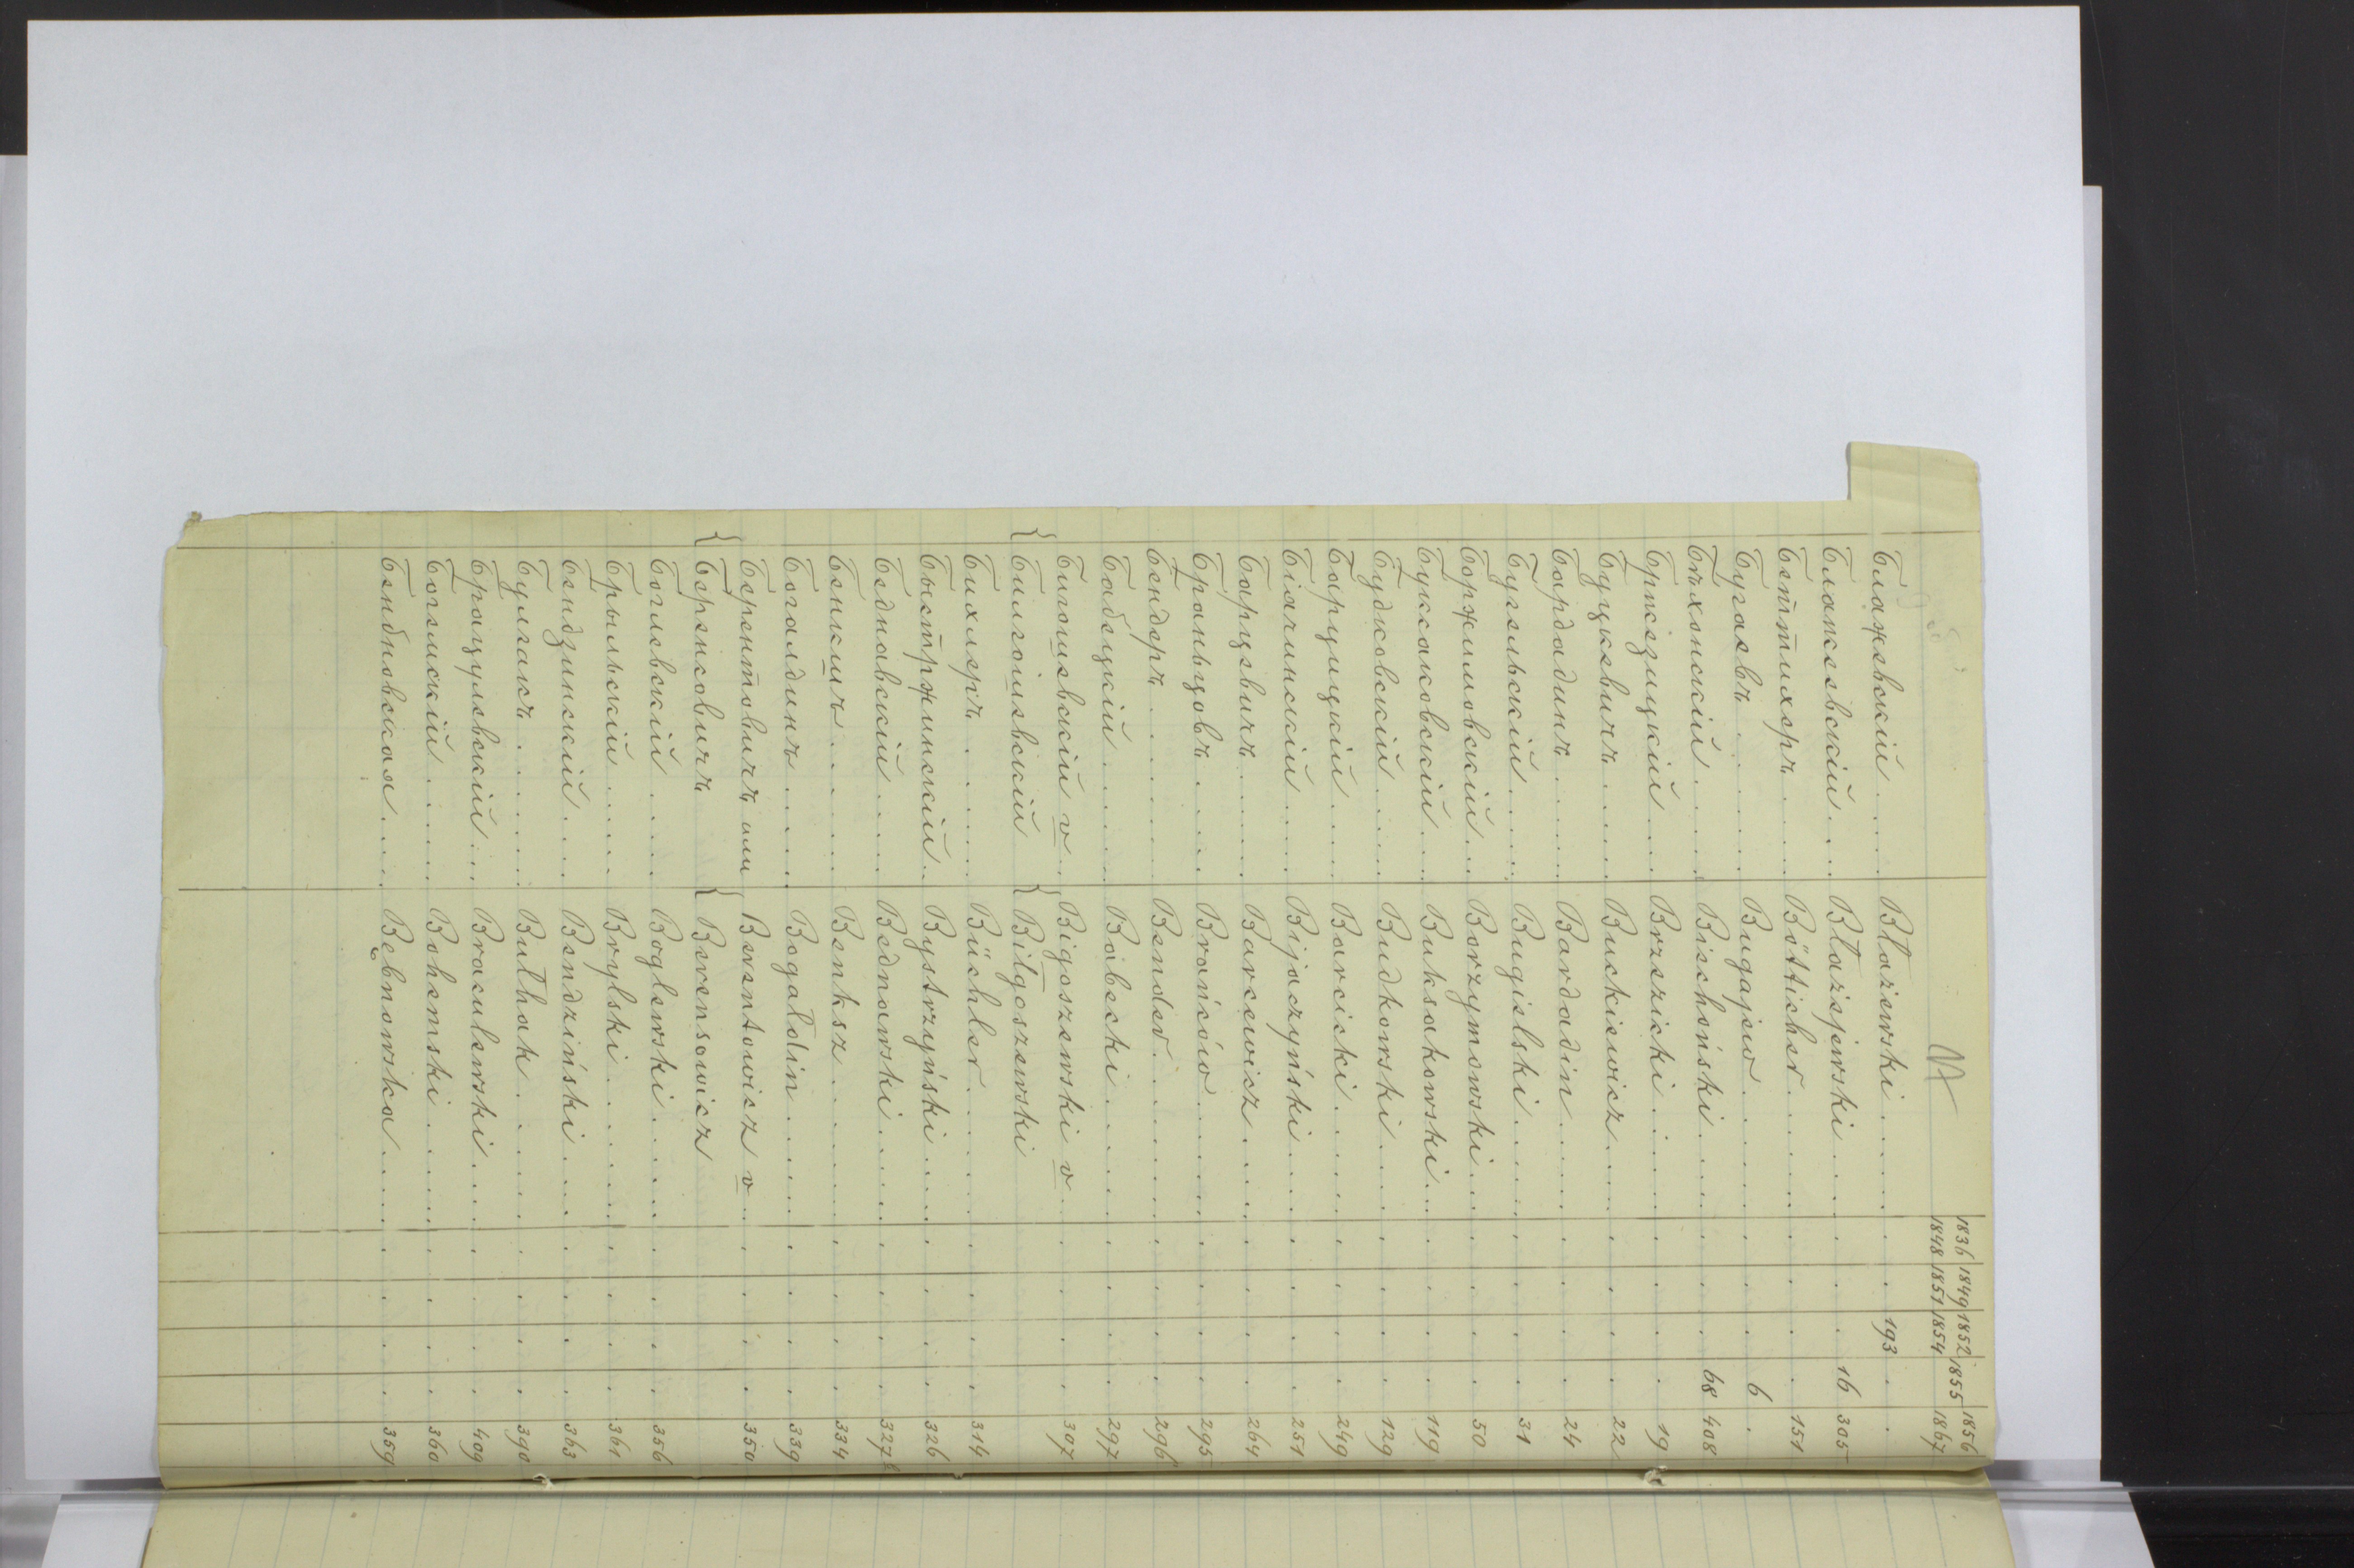 1836 1849 1852 1855 1856
1848 1851 1854 1867
Блажевскій . . . . . Błażewski . . . . . 193 . .
Блажеевскій . . . . Błażejewski . . . . . 16 305
Беттихеръ . . . . . Bötticher . . . . . 151
Бугаевъ . . . . . Bugajew . . . . . 6 .
Бѣхонскій . . . . . Biechoński . . . . . 68 408
Бржезицкій . . . . Brzezicki . . . . . 19
Буцкевичъ . . . . . Buckiewicz . . . . . 22
Бардадинъ . . . . . Bardadin . . . . . 24
Бугельскій . . . . . Bugielski . . . . . 31
Боржимовскій . . . Borzymowski . . . . . 50
Буксаковскій . . . Buksakowski . . . . . 119
Будковскій . . . . . Budkowski . . . . . 129
Барцицкій . . . . . Barcicki . . . . . 249
Біячинскій . . . . Bijaczyński . . . . . 251
Барцевичъ . . . . . Barcewicz . . . . . 264
Браньцовъ . . . . . Brańców . . . . . 295
Бендеръ . . . . . Bender . . . . . 296
Бабецкій . . . . . Babecki . . . . . 297
Бигошевскій v . . . Bigoszewski v . . . . . 307
{ Билгошевскій { Bilgoszewski
Бихлеръ . . . . . Büchler . . . . . 314
Быстржинскій . . Bystrzyński . . . . . 326
Беднавскій . . . . Bednawski . . . . . 327
Бенкшъ . . . . . Benksz . . . . . 334
Богалдинъ . . . . . Bogałdin . . . . . 339
Берентовичъ или Berentowicz v . . . . . 350
{ Беренсовичъ { Berensowicz
Боглевскій . . . . Boglewski . . . . . 356
Брыльскій . . . . . Brylski . . . . . 361
Бендзинскій . . . . Bendziński . . . . . 363
Булгакъ . . . . . Bułhak . . . . . 390
Брацулевскій . . . Braculewski . . . . . 409
Богемскій . . . . . Bohemski . . . . . 360
Бембновская . . . . Bębnowska . . . . . 359